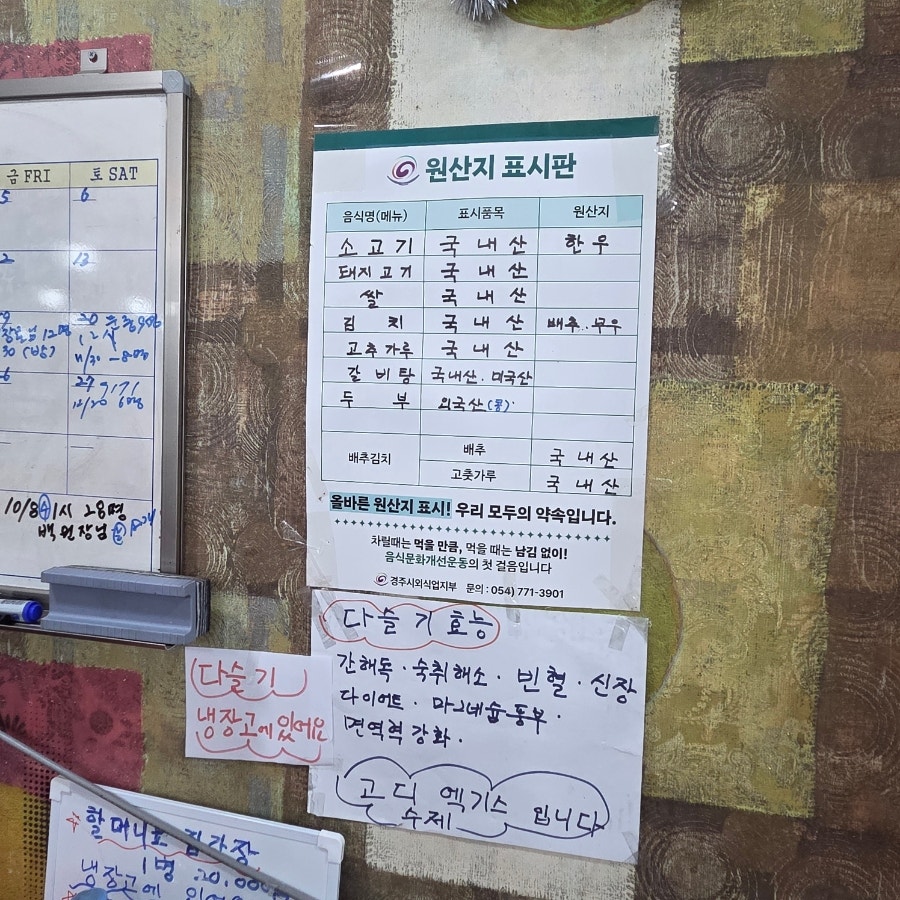 금 FRI 토 SAT
5 6
13
20
12명
30 (박)
11/30 - 8명
27
12/20 6명
10/8 수 1시 28명
백원장님
원산지 표시판
음식명(메뉴) 표시품목 원산지
소고기 국내산 한우
돼지고기 국내산
쌀 국내산
김치 국내산 배추.무우
고추가루 국내산
갈비탕 국내산.미국산
두부 외국산(콩).
배추김치 배추 국내산
고춧가루 국내산
올바른 원산지 표시! 우리 모두의 약속입니다.
차릴때는 먹을 만큼, 먹을 때는 남김 없이!
음식문화개선운동의 첫 걸음입니다
경주시외식업지부 문의 : 054) 771-3901
다슬기효능
간해독.숙취해소.빈혈.신장
다이어트.마그네슘풍부.
면역력강화.
고디 엑기스 입니다
수제
다슬기
냉장고에 있어요
할머니표 집간장
1병 20,000
냉장고에